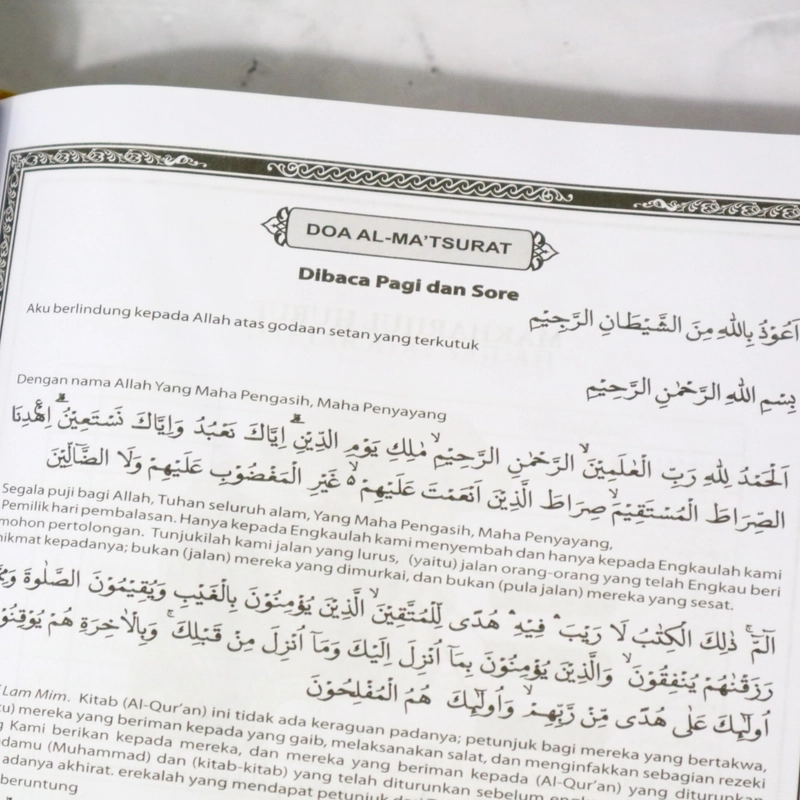 DOA AL-MA'TSURAT
Dibaca Pagi dan Sore
اَعُوْذُ بِاللّٰهِ مِنَ الشَّيْطَانِ الرَّجِيْمِ
Aku berlindung kepada Allah atas godaan setan yang terkutuk
بِسْمِ اللّٰهِ الرَّحْمٰنِ الرَّحِيْمِ
Dengan nama Allah Yang Maha Pengasih, Maha Penyayang
اَلْحَمْدُ لِلّٰهِ رَبِّ الْعٰلَمِيْنَۙ الرَّحْمٰنِ الرَّحِيْمِۙ مٰلِكِ يَوْمِ الدِّيْنِۗ اِيَّاكَ نَعْبُدُ وَاِيَّاكَ نَسْتَعِيْنُۗ اِهْدِنَا
الصِّرَاطَ الْمُسْتَقِيْمَۙ صِرَاطَ الَّذِيْنَ اَنْعَمْتَ عَلَيْهِمْ ەۙ غَيْرِ الْمَغْضُوْبِ عَلَيْهِمْ وَلَا الضَّاۤلِّيْنَ
Segala puji bagi Allah, Tuhan seluruh alam, Yang Maha Pengasih, Maha Penyayang,
Pemilik hari pembalasan. Hanya kepada Engkaulah kami menyembah dan hanya kepada Engkaulah kami
mohon pertolongan. Tunjukilah kami jalan yang lurus, (yaitu) jalan orang-orang yang telah Engkau beri
nikmat kepadanya; bukan (jalan) mereka yang dimurkai, dan bukan (pula jalan) mereka yang sesat.
الۤمّۤۚ ذٰلِكَ الْكِتٰبُ لَا رَيْبَۛ فِيْهِۛ هُدًى لِّلْمُتَّقِيْنَۙ الَّذِيْنَ يُؤْمِنُوْنَ بِالْغَيْبِ وَيُقِيْمُوْنَ الصَّلٰوةَ
رَزَقْنٰهُمْ يُنْفِقُوْنَۙ وَالَّذِيْنَ يُؤْمِنُوْنَ بِمَآ اُنْزِلَ اِلَيْكَ وَمَآ اُنْزِلَ مِنْ قَبْلِكَۚ وَبِالْاٰخِرَةِ هُمْ
اُولٰۤىِٕكَ عَلٰى هُدًى مِّنْ رَّبِّهِمْۙ وَاُولٰۤىِٕكَ هُمُ الْمُفْلِحُوْنَ
Lam Mim. Kitab (Al-Qur'an) ini tidak ada keraguan padanya; petunjuk bagi mereka yang bertakwa,
mereka yang beriman kepada yang gaib, melaksanakan salat, dan menginfakkan sebagian rezeki
Kami berikan kepada mereka, dan mereka yang beriman kepada (Al-Qur'an) yang diturunkan
(Muhammad) dan (kitab-kitab) yang telah diturunkan sebelum
adanya akhirat. erekalah yang mendapat petunjuk
beruntung